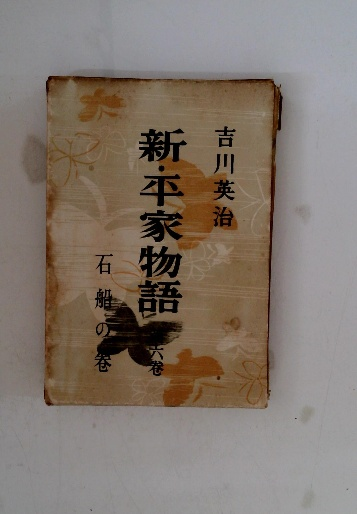 吉川英治
新・平家物語
六巻
石船の巻